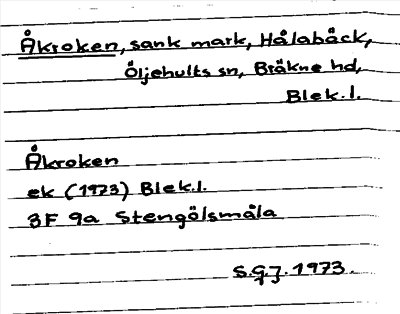 Åkroken, sank mark, Hålabäck,
Öljehults sn, Bräkne hd,
Blek.l.
Åkroken
ek (1973) Blek.l.
3F 9a Stengölsmåla
S.G.J. 1973.